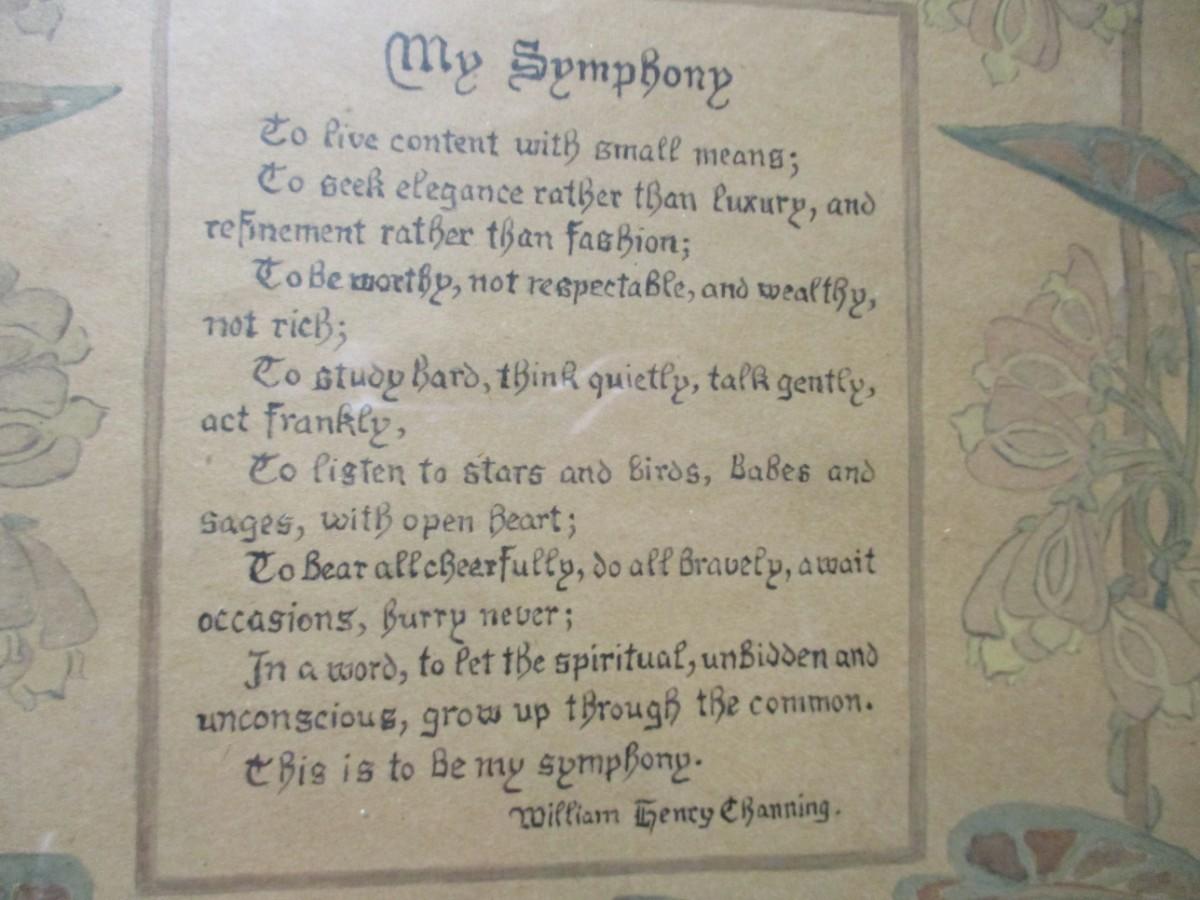 My Symphony
To live content with small means;
To seek elegance rather than luxury, and
refinement rather than fashion;
To be worthy, not respectable, and wealthy,
not rich;
To study hard, think quietly, talk gently,
act frankly,
To listen to stars and birds, babes and
sages, with open heart;
To bear all cheerfully, do all bravely, await
occasions, hurry never;
In a word, to let the spiritual, unbidden and
unconscious, grow up through the common.
This is to be my symphony.
William Henry Channing.